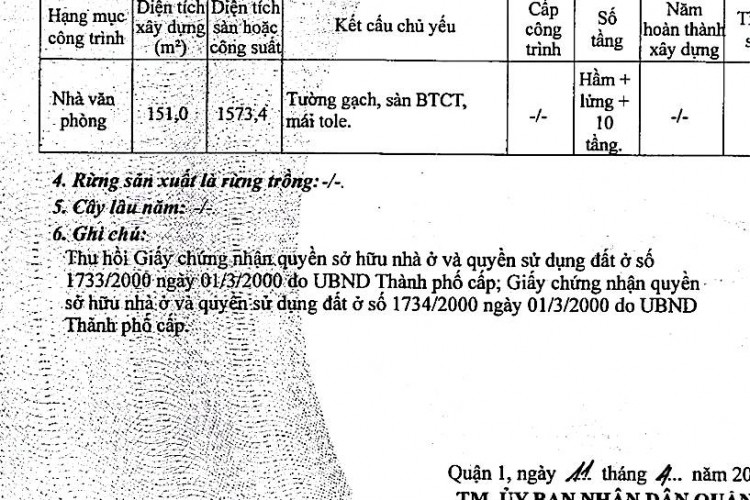 Hạng mục công trình
Diện tích xây dựng (m²)
Diện tích sàn hoặc công suất
Kết cấu chủ yếu
Cấp công trình
Số tầng
Năm hoàn thành xây dựng
Nhà văn phòng
151,0
1573,4
Tường gạch, sàn BTCT, mái tole.
-/-
Hầm + lửng + 10 tầng.
-/-
4. Rừng sản xuất là rừng trồng: -/-.
5. Cây lâu năm: -/-.
6. Ghi chú:
Thu hồi Giấy chứng nhận quyền sở hữu nhà ở và quyền sử dụng đất ở số
1733/2000 ngày 01/3/2000 do UBND Thành phố cấp; Giấy chứng nhận quyền
sở hữu nhà ở và quyền sử dụng đất ở số 1734/2000 ngày 01/3/2000 do UBND
Thành phố cấp.
Quận 1, ngày 11 tháng 4... năm 20
TM. ỦY BAN NHÂN DÂN QUẬN